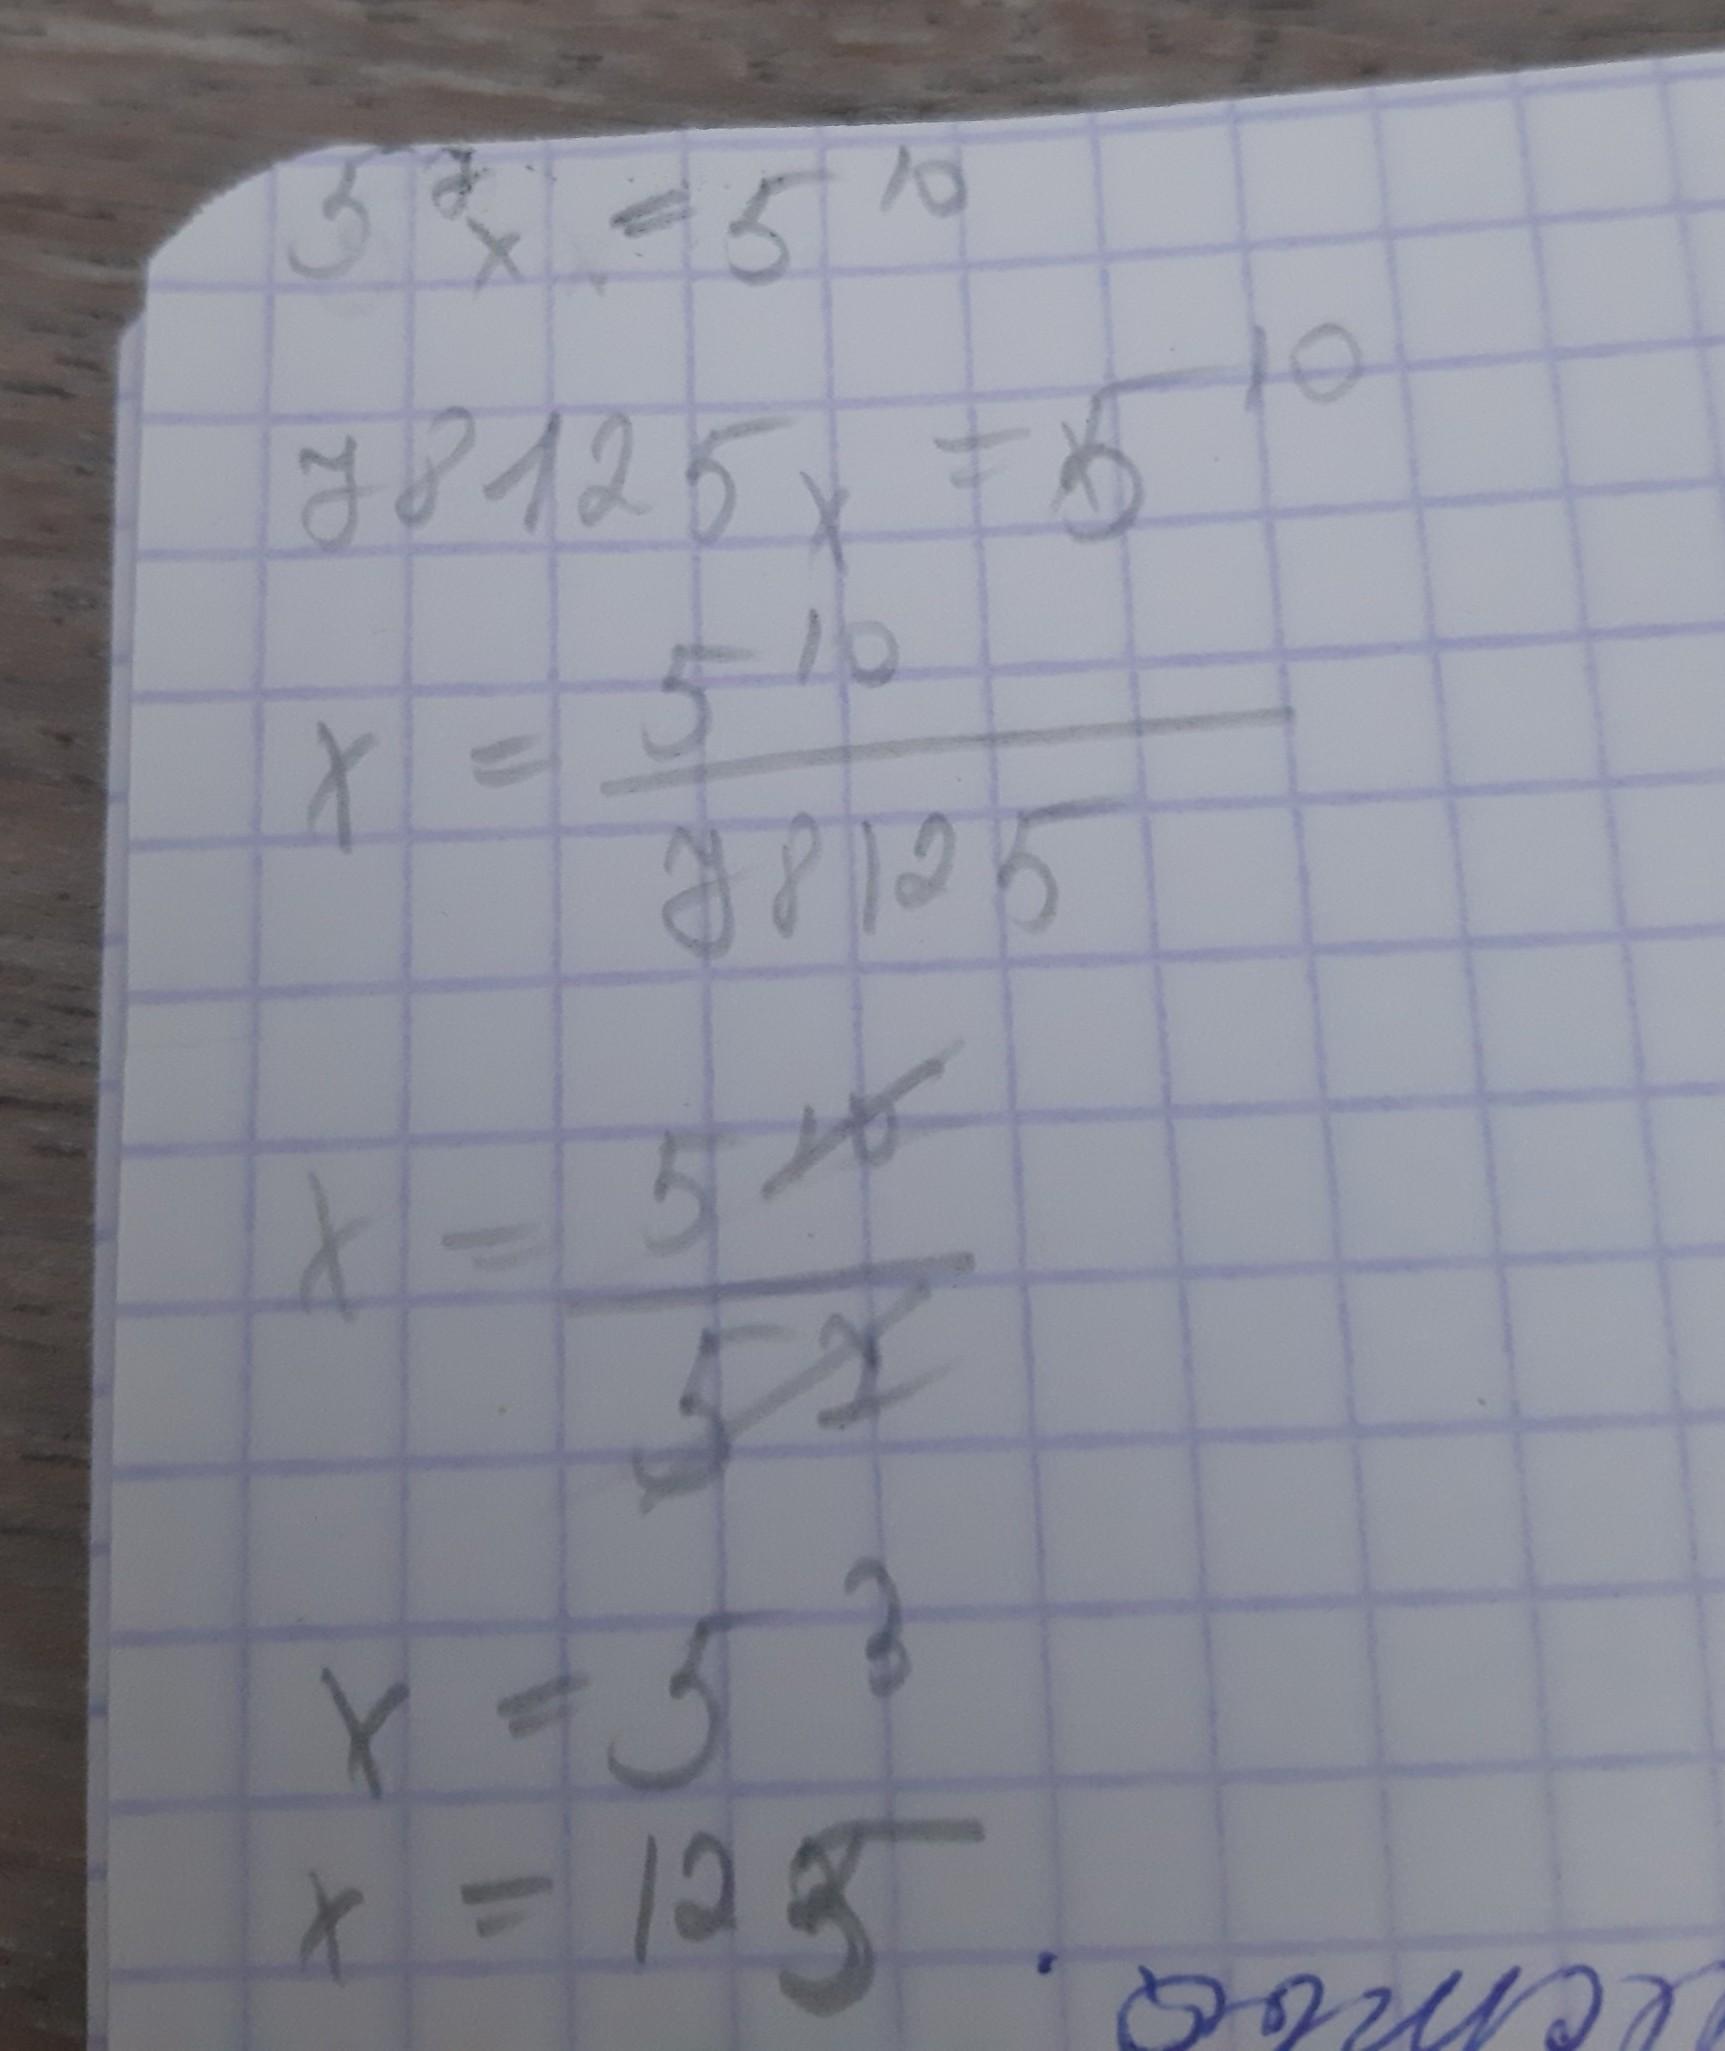 5⁷x = 5¹⁰
78125x = 5¹⁰
x = 5¹⁰ / 78125
x = 5¹⁰ / 5⁷
x = 5³
x = 125